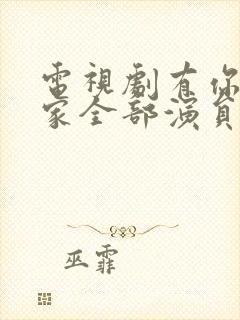 電視劇有你
家全部演員
巫霏